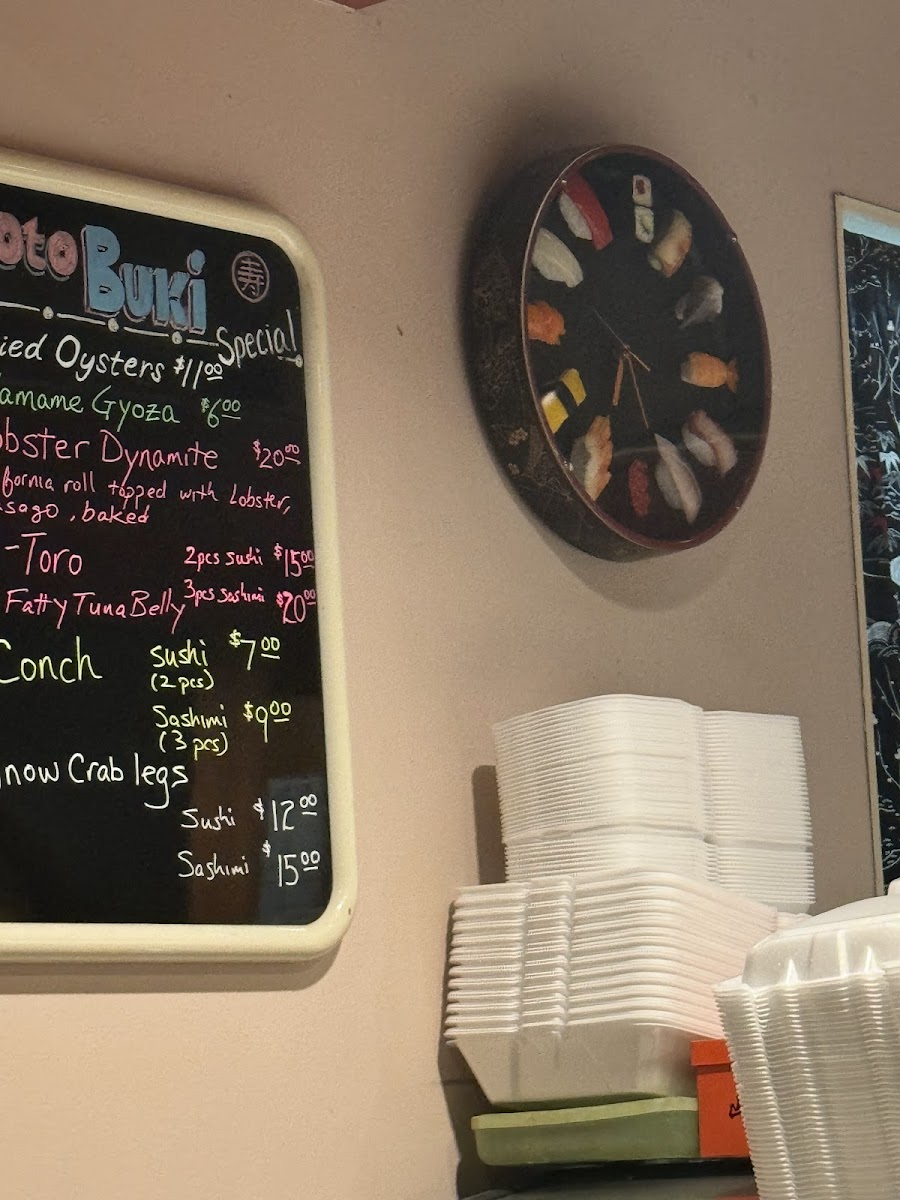 oto Buki
寿
Special
ied Oysters $11.00
amame Gyoza $6.00
obster Dynamite $20.00
fornia roll topped with Lobster,
sago, baked
-Toro 2pcs sushi $15.00
Fatty Tuna Belly 3pcs Sashimi $20.00
Conch sushi $7.00
(2 pcs)
Sashimi $9.00
(3 pcs)
now Crab legs
Sushi $12.00
Sashimi $15.00